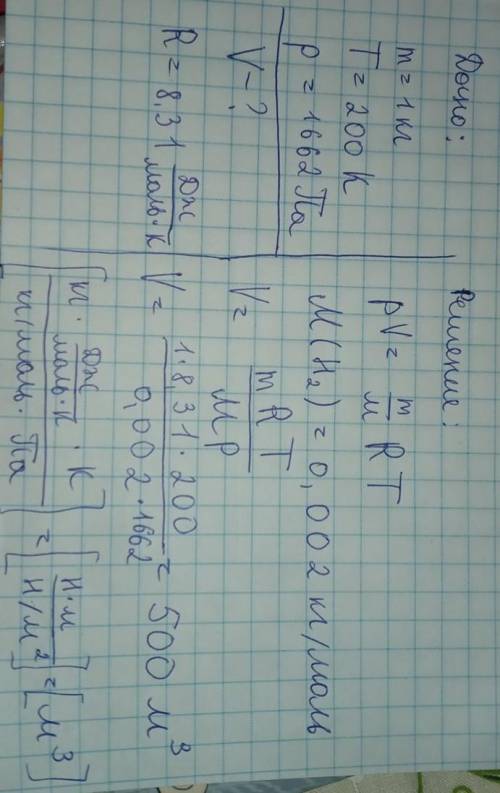 Дано:
m = 1 кг
T = 200 К
p = 1662 Па
V - ?
R = 8,31 Дж/моль·К
Решение:
pV = m/M RT
M(H₂) = 0,002 кг/моль
V = mRT/Mp
V = 1·831·200/0,002·1662 = 500 м³
[кг · Дж/моль·К · К/кг/моль · Па] = [Н·м/Н/м²] = [м³]